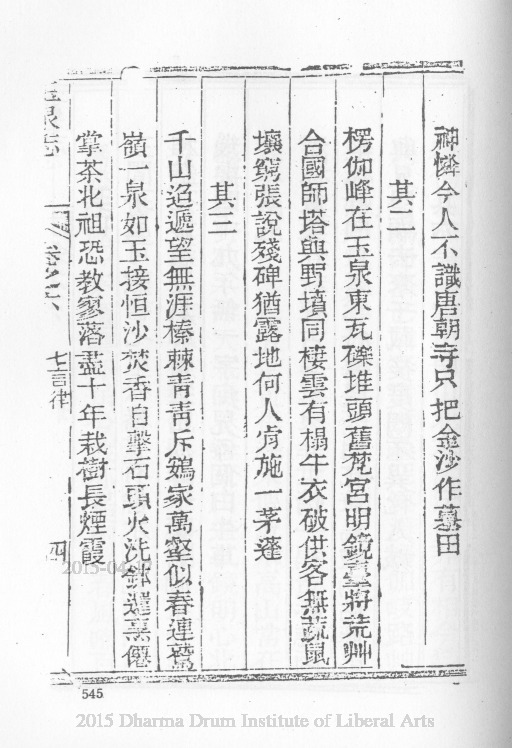 神憐今人不識唐朝寺只把金沙作墓田
其二
楞伽峰在玉泉東瓦礫堆頭舊梵宮明鏡臺將荒艸
合國師塔與野墳同棲雲有榻牛衣破供客無蔬鼠
壤窮張說殘碑猶露地何人肯施一茅蓬
其三
千山迢遞望無涯榛棘青青斥鷃家萬壑似春連鷲
嶺一泉如玉接恒沙焚香自擊石頭火洗鉢還烹僊
掌茶北祖恐教寥落盡十年栽樹長煙霞
玉泉志 卷之六 七言律 四
2015-04-17
545
2015 Dharma Drum Institute of Liberal Arts